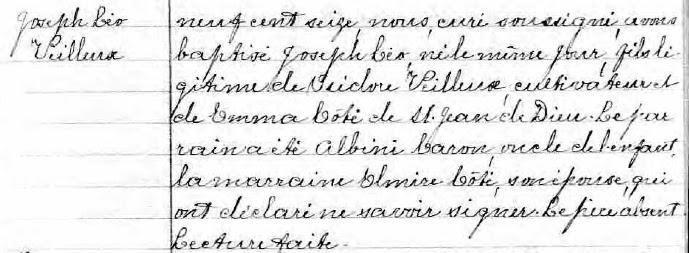 Joseph Léo
Veilleux
neuf cent seize, nous, curé soussigné, avons
baptisé Joseph Léo, né le même jour, fils lé-
gitime de Isidore Veilleux, cultivateur et
de Emma Côté de St. Jean de Dieu. Le par-
rain a été Albini Caron, oncle de l'enfant,
la marraine Elmire Côté, son épouse, qui
ont déclaré ne savoir signer. Le père absent.
Lecture faite.